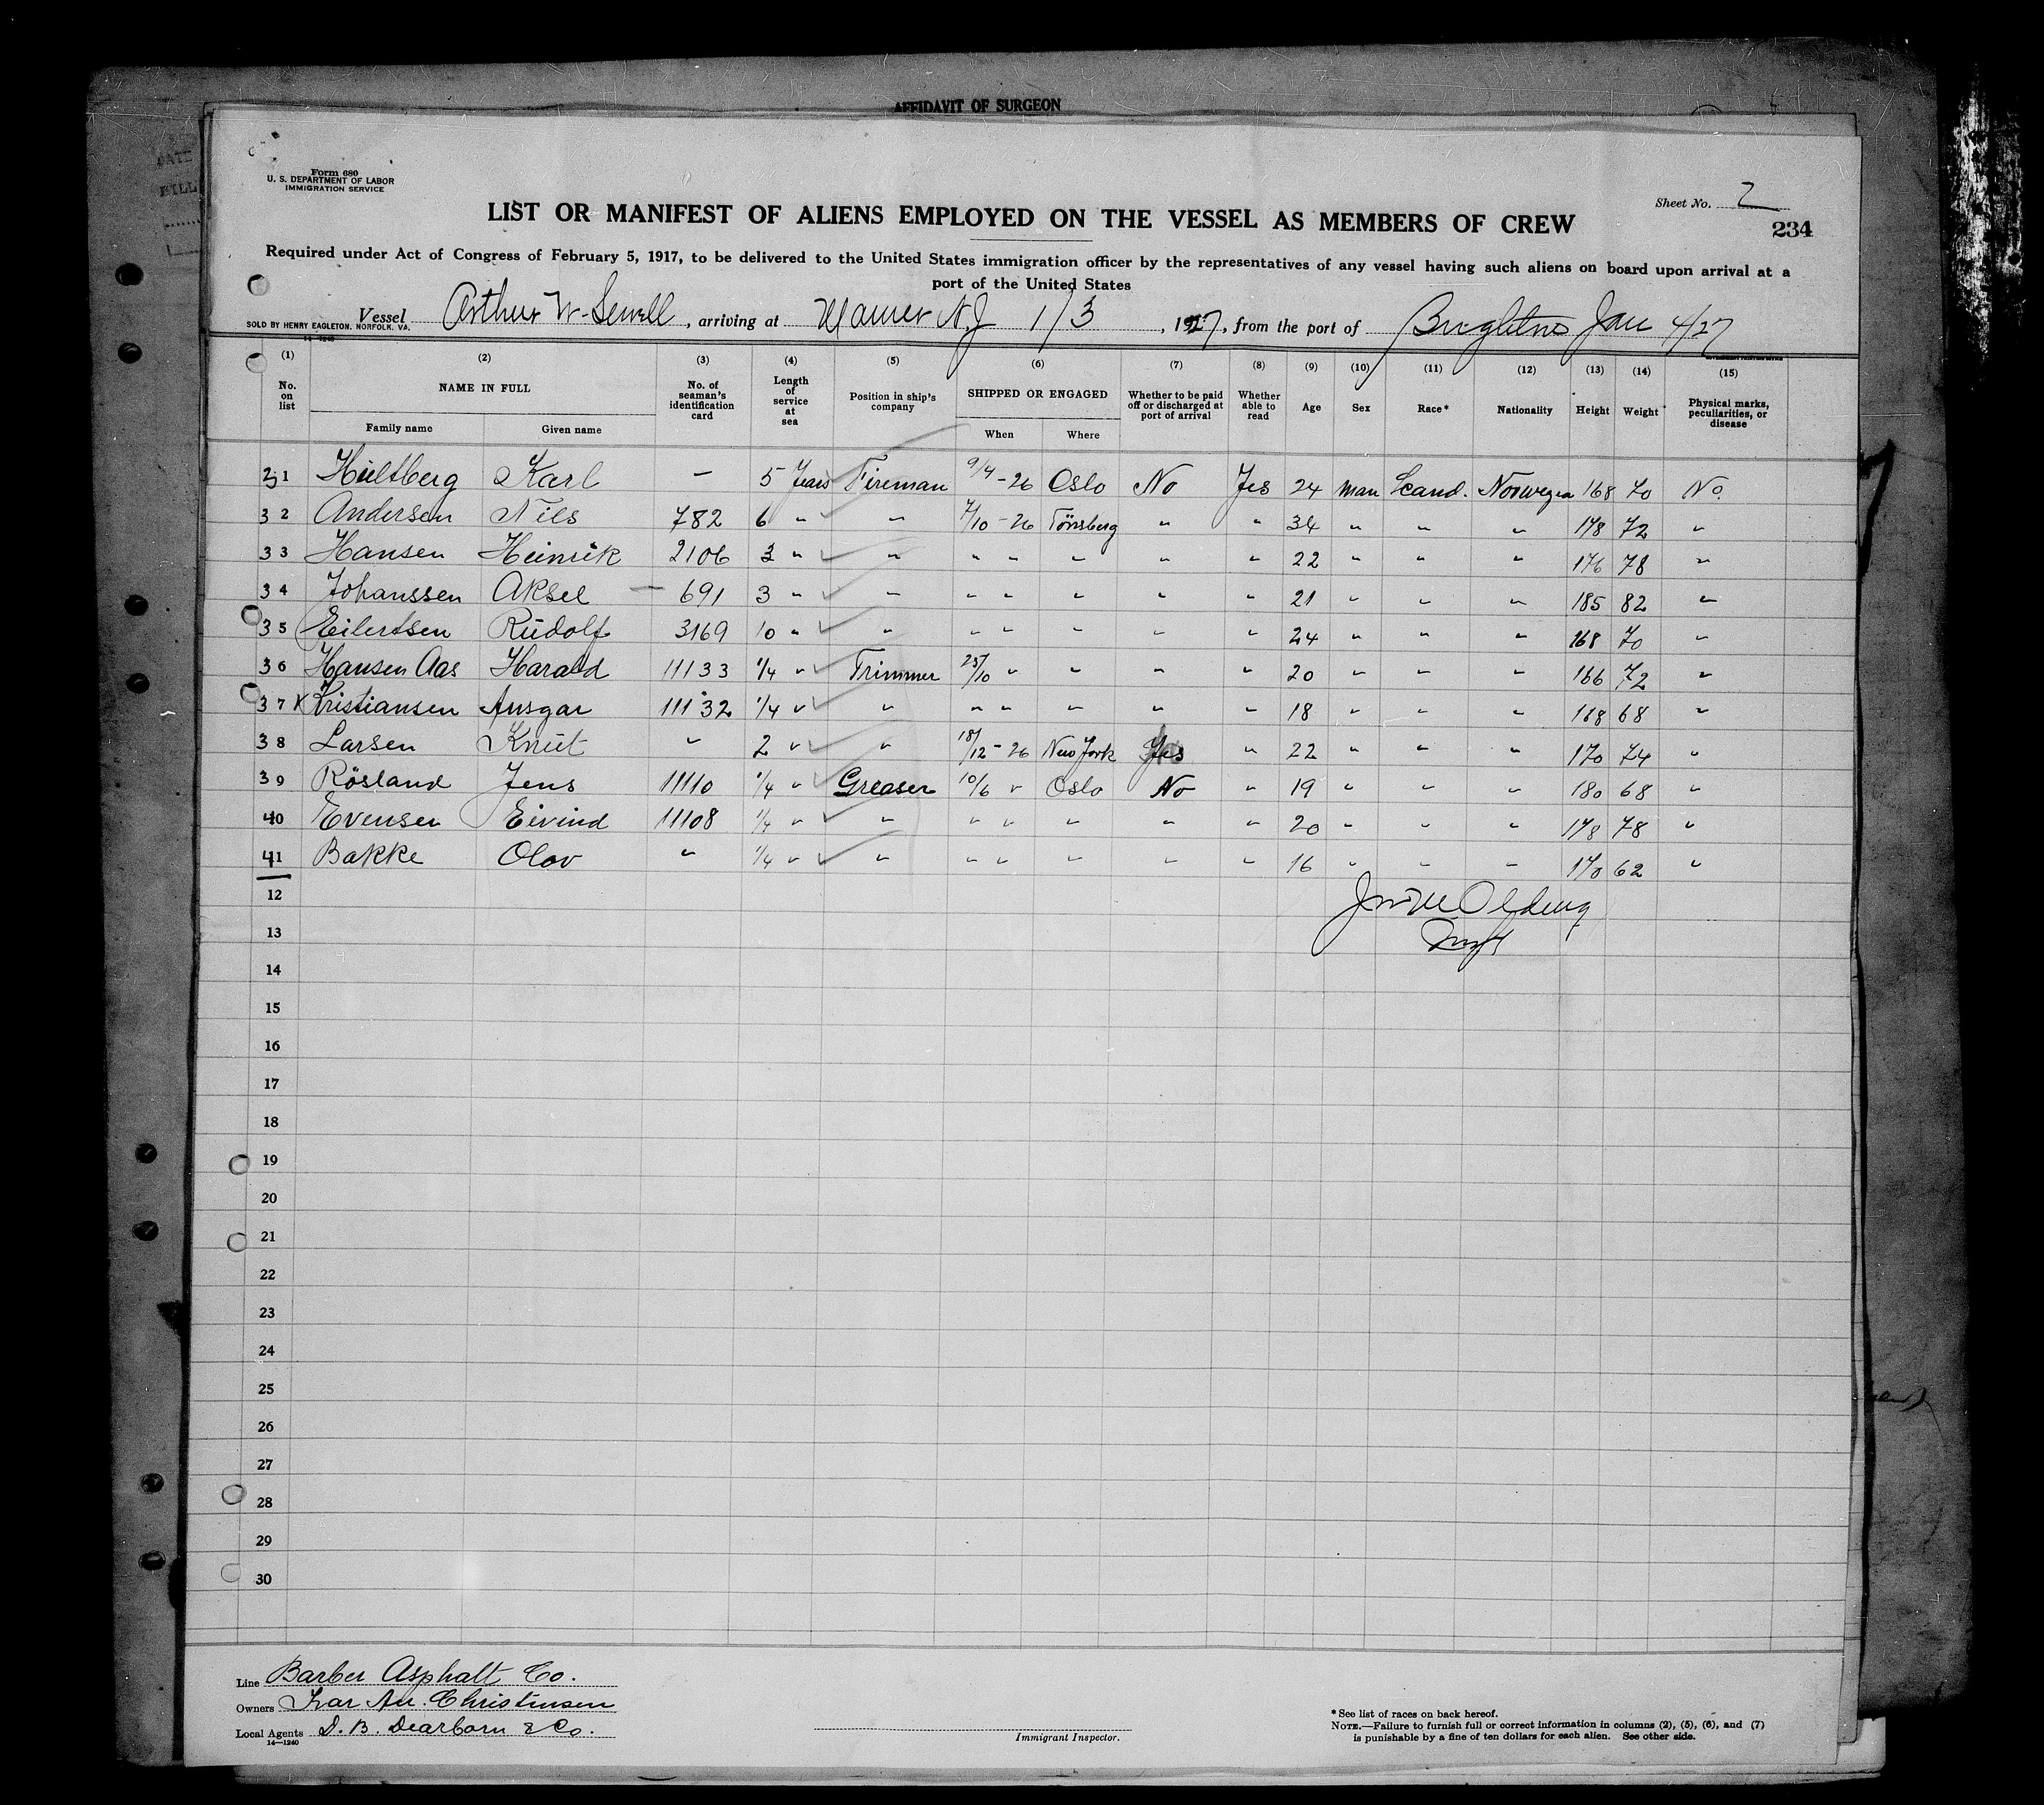 AFFIDAVIT OF SURGEON
Form 680
U. S. DEPARTMENT OF LABOR
IMMIGRATION SERVICE
Sheet No. 2
LIST OR MANIFEST OF ALIENS EMPLOYED ON THE VESSEL AS MEMBERS OF CREW
234
Required under Act of Congress of February 5, 1917, to be delivered to the United States immigration officer by the representatives of any vessel having such aliens on board upon arrival at a
port of the United States
Vessel Arthur W. Sewell, arriving at Maurer N.J. 1/3, 1927, from the port of Brighton Jan 4/27
SOLD BY HENRY EAGLETON, NORFOLK, VA.
(1) (2) (3) (4) (5) (6) (7) (8) (9) (10) (11) (12) (13) (14) (15)
No. on list NAME IN FULL Family name Given name No. of seaman's identification card Length of service at sea Position in ship's company SHIPPED OR ENGAGED When Where Whether to be paid off or discharged at port of arrival Whether able to read Age Sex Race* Nationality Height Weight Physical marks, peculiarities, or disease
31 Hultberg Karl — 5 Years Fireman 9/4 - 26 Oslo No Yes 24 Man Scand. Norwegia 168 70 No.
32 Andersen Nils 782 6 " " 7/10 - 26 Tönsberg " " 34 " " " 178 72 "
33 Hansen Heinrik 2106 3 " " " " " " " 22 " " " 176 78 "
34 Johanssen Aksel — 691 3 " " " " " " " 21 " " " 185 82 "
35 Eilertsen Rudolf 3169 10 " " " " " " " 24 " " " 168 70 "
36 Hansen Aas Harald 11133 1/4 " Trimmer 25/10 " " " " 20 " " " 166 72 "
37 Kristiansen Ansgar 11132 1/4 " " " " " " " 18 " " " 168 68 "
38 Larsen Knut " 2 " " 18/12 - 26 New York Yes " 22 " " " 170 74 "
39 Rösland Jens 11110 1/4 " Greaser 10/6 " Oslo No " 19 " " " 180 68 "
40 Evensen Eivind 11108 1/4 " " " " " " " 20 " " " 178 78 "
41 Bakke Olov " 1/4 " " " " " " " 16 " " " 170 62 "
12
13
14
15
16
17
18
19
20
21
22
23
24
25
26
27
28
29
30
Line Barber Asphalt Co.
Owners Christensen
Local Agents D. B. Dearborn & Co.
14—1240
Immigrant Inspector.
* See list of races on back hereof.
NOTE.—Failure to furnish full or correct information in columns (2), (5), (6), and (7)
is punishable by a fine of ten dollars for each alien. See other side.